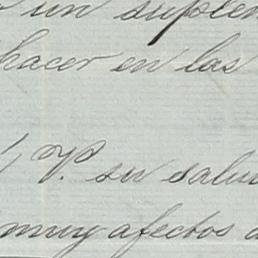 un suplem
hacer en las
V. su salu
muy afectos